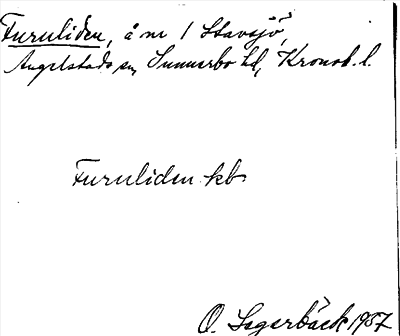 Furuliden, å nr 1 Stavsjö,
Angelstads sn, Sunnerbo hd, Kronob. l.
Furuliden kb
O. Lagerbäck 1957